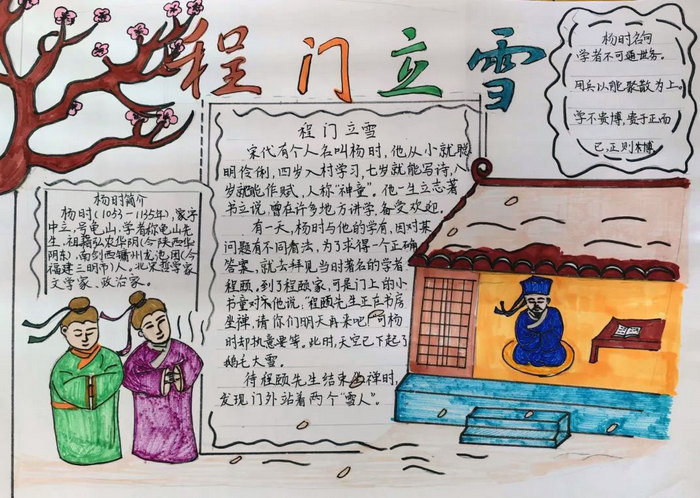 程门立雪
杨时名句
学者不可不通世务。
用兵以能聚散为上。
学不贵博，贵于正而
已，正则博。
程门立雪
宋代有个人名叫杨时，他从小就聪
明伶俐，四岁入村学习，七岁就能写诗，八
岁就能作赋，人称“神童”。他一生立志著
书立说，曾在许多地方讲学，备受欢迎。
有一天，杨时与他的学有，因对某
问题有不同看法，为了求得一个正确
答案，就去拜见当时著名的学者
程颐，到了程颐家，可是门上的小
书童对他说，“程颐先生正在书房
坐禅，请你们明天再来吧”可杨
时却执意要等，此时，天空已下起了
鹅毛大雪。
待程颐先生结束坐禅时，
发现门外站着两个“雪人”。
杨时简介
杨时（1053－1135年），家字
中立，号龟山，学者称龟山先
生，祖籍弘农华阴（今陕西华
阴东），南剑西镛州龙池团（今
福建三明市）人。北宋哲学家
文学家、政治家。